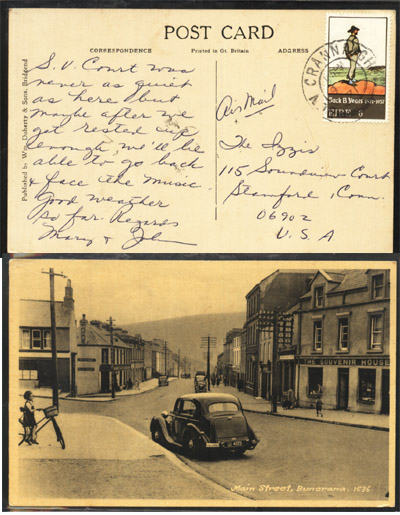 POST CARD
CORRESPONDENCE Printed in Gt. Britain ADDRESS
S.V. Court was
never as quiet
as here but
maybe after we
get rested up
enough, we'll be
able to go back
& face the music.
Good weather
so far. Regards
Mary & John
Published by Wm. Doherty & Sons, Bridgend
Jack B Yeats 1871-1957
EIRE 6
Air Mail
The Izzis
115 Soundview Court
Stamford, Conn.
06902
U.S.A
THE SOUVENIR HOUSE
Main Street, Buncrana.